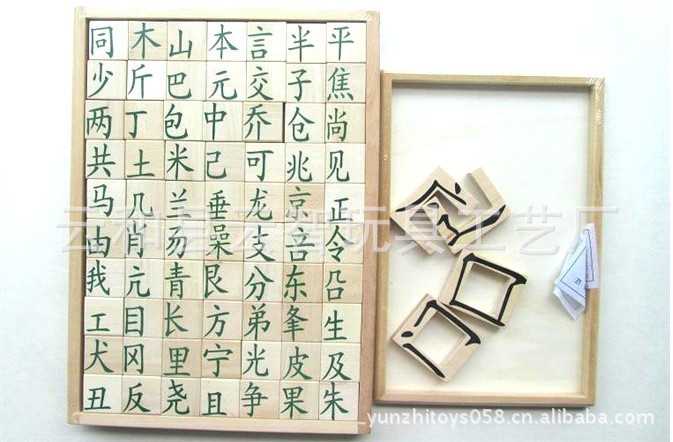 同木山本言半平
少斤巴元交子焦
两丁包中乔仓尚
共土米己可兆见
马几兰垂龙京正
由肖勿喿支喜令
我亢青艮分东㕣
工目长方弟夆生
犬冈里宁光皮及
丑反尧且争果朱
云和县云智玩具工艺厂
yunzhitoys058.cn.alibaba.com